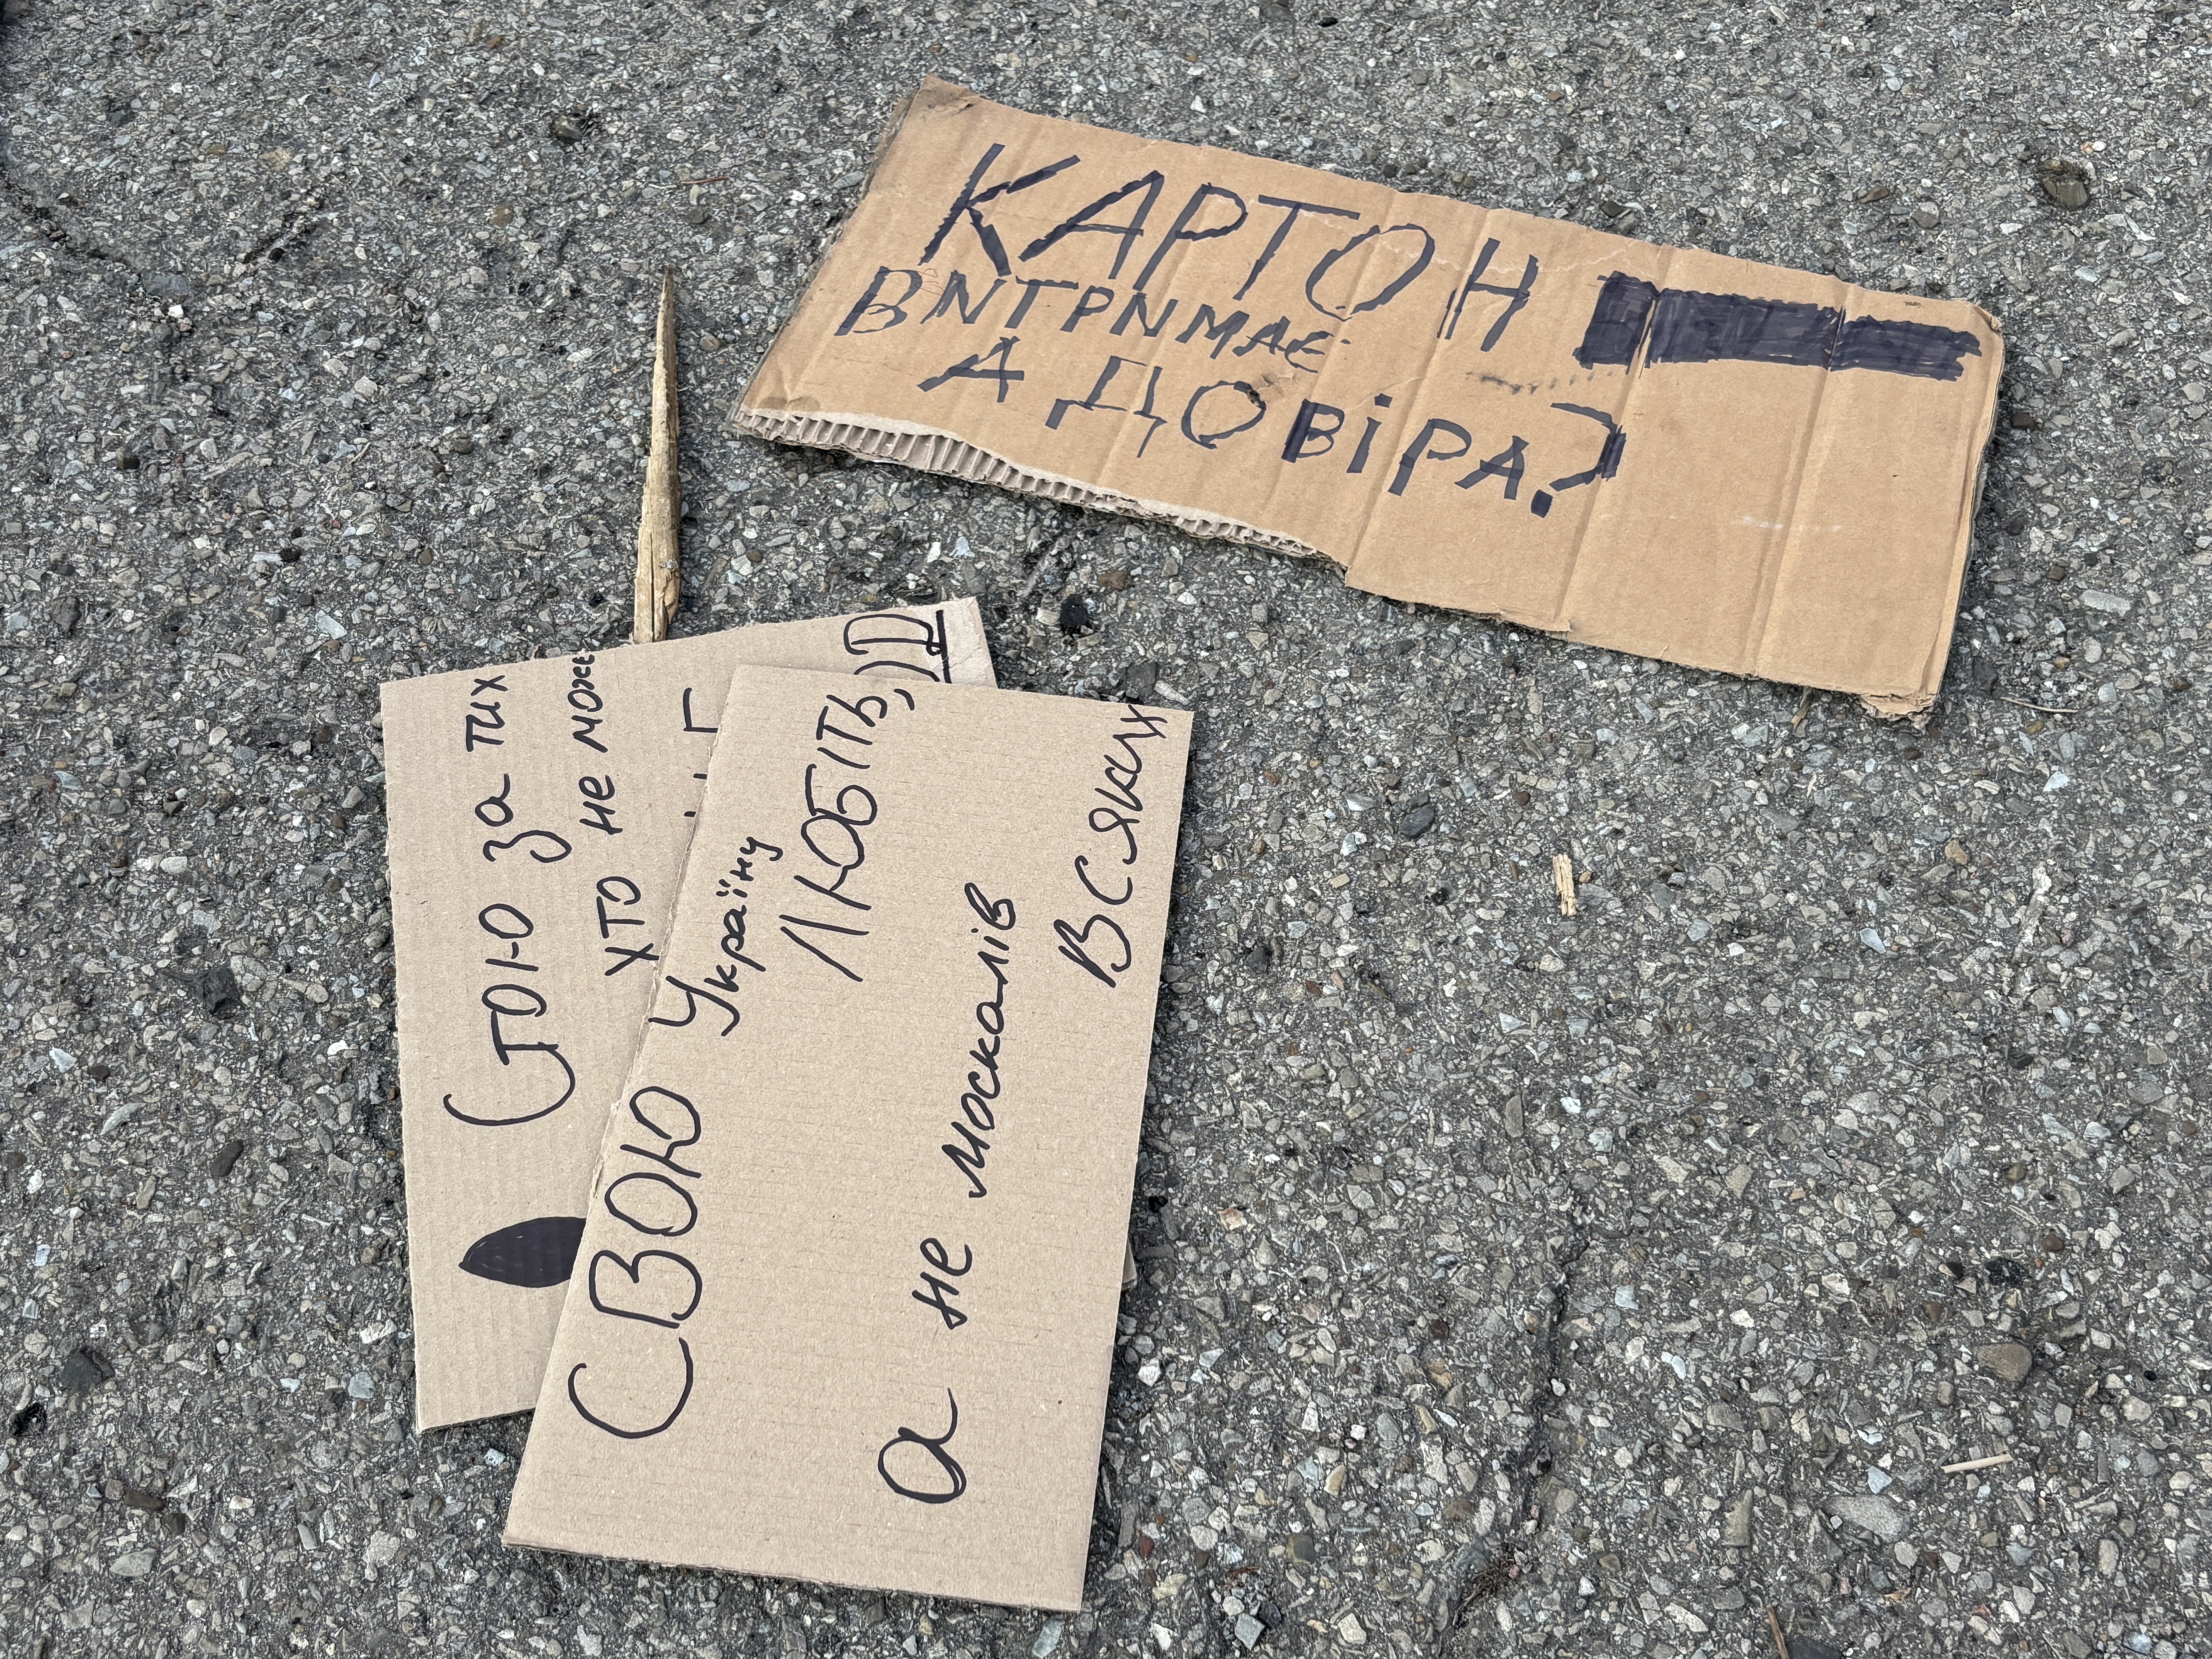 КАРТОН
ВИТРИМАЄ
А ДОВІРА?
Стою за тих
хто не може
СВОЮ Україну
ЛЮБІТЬ,
а не москалів
всяких